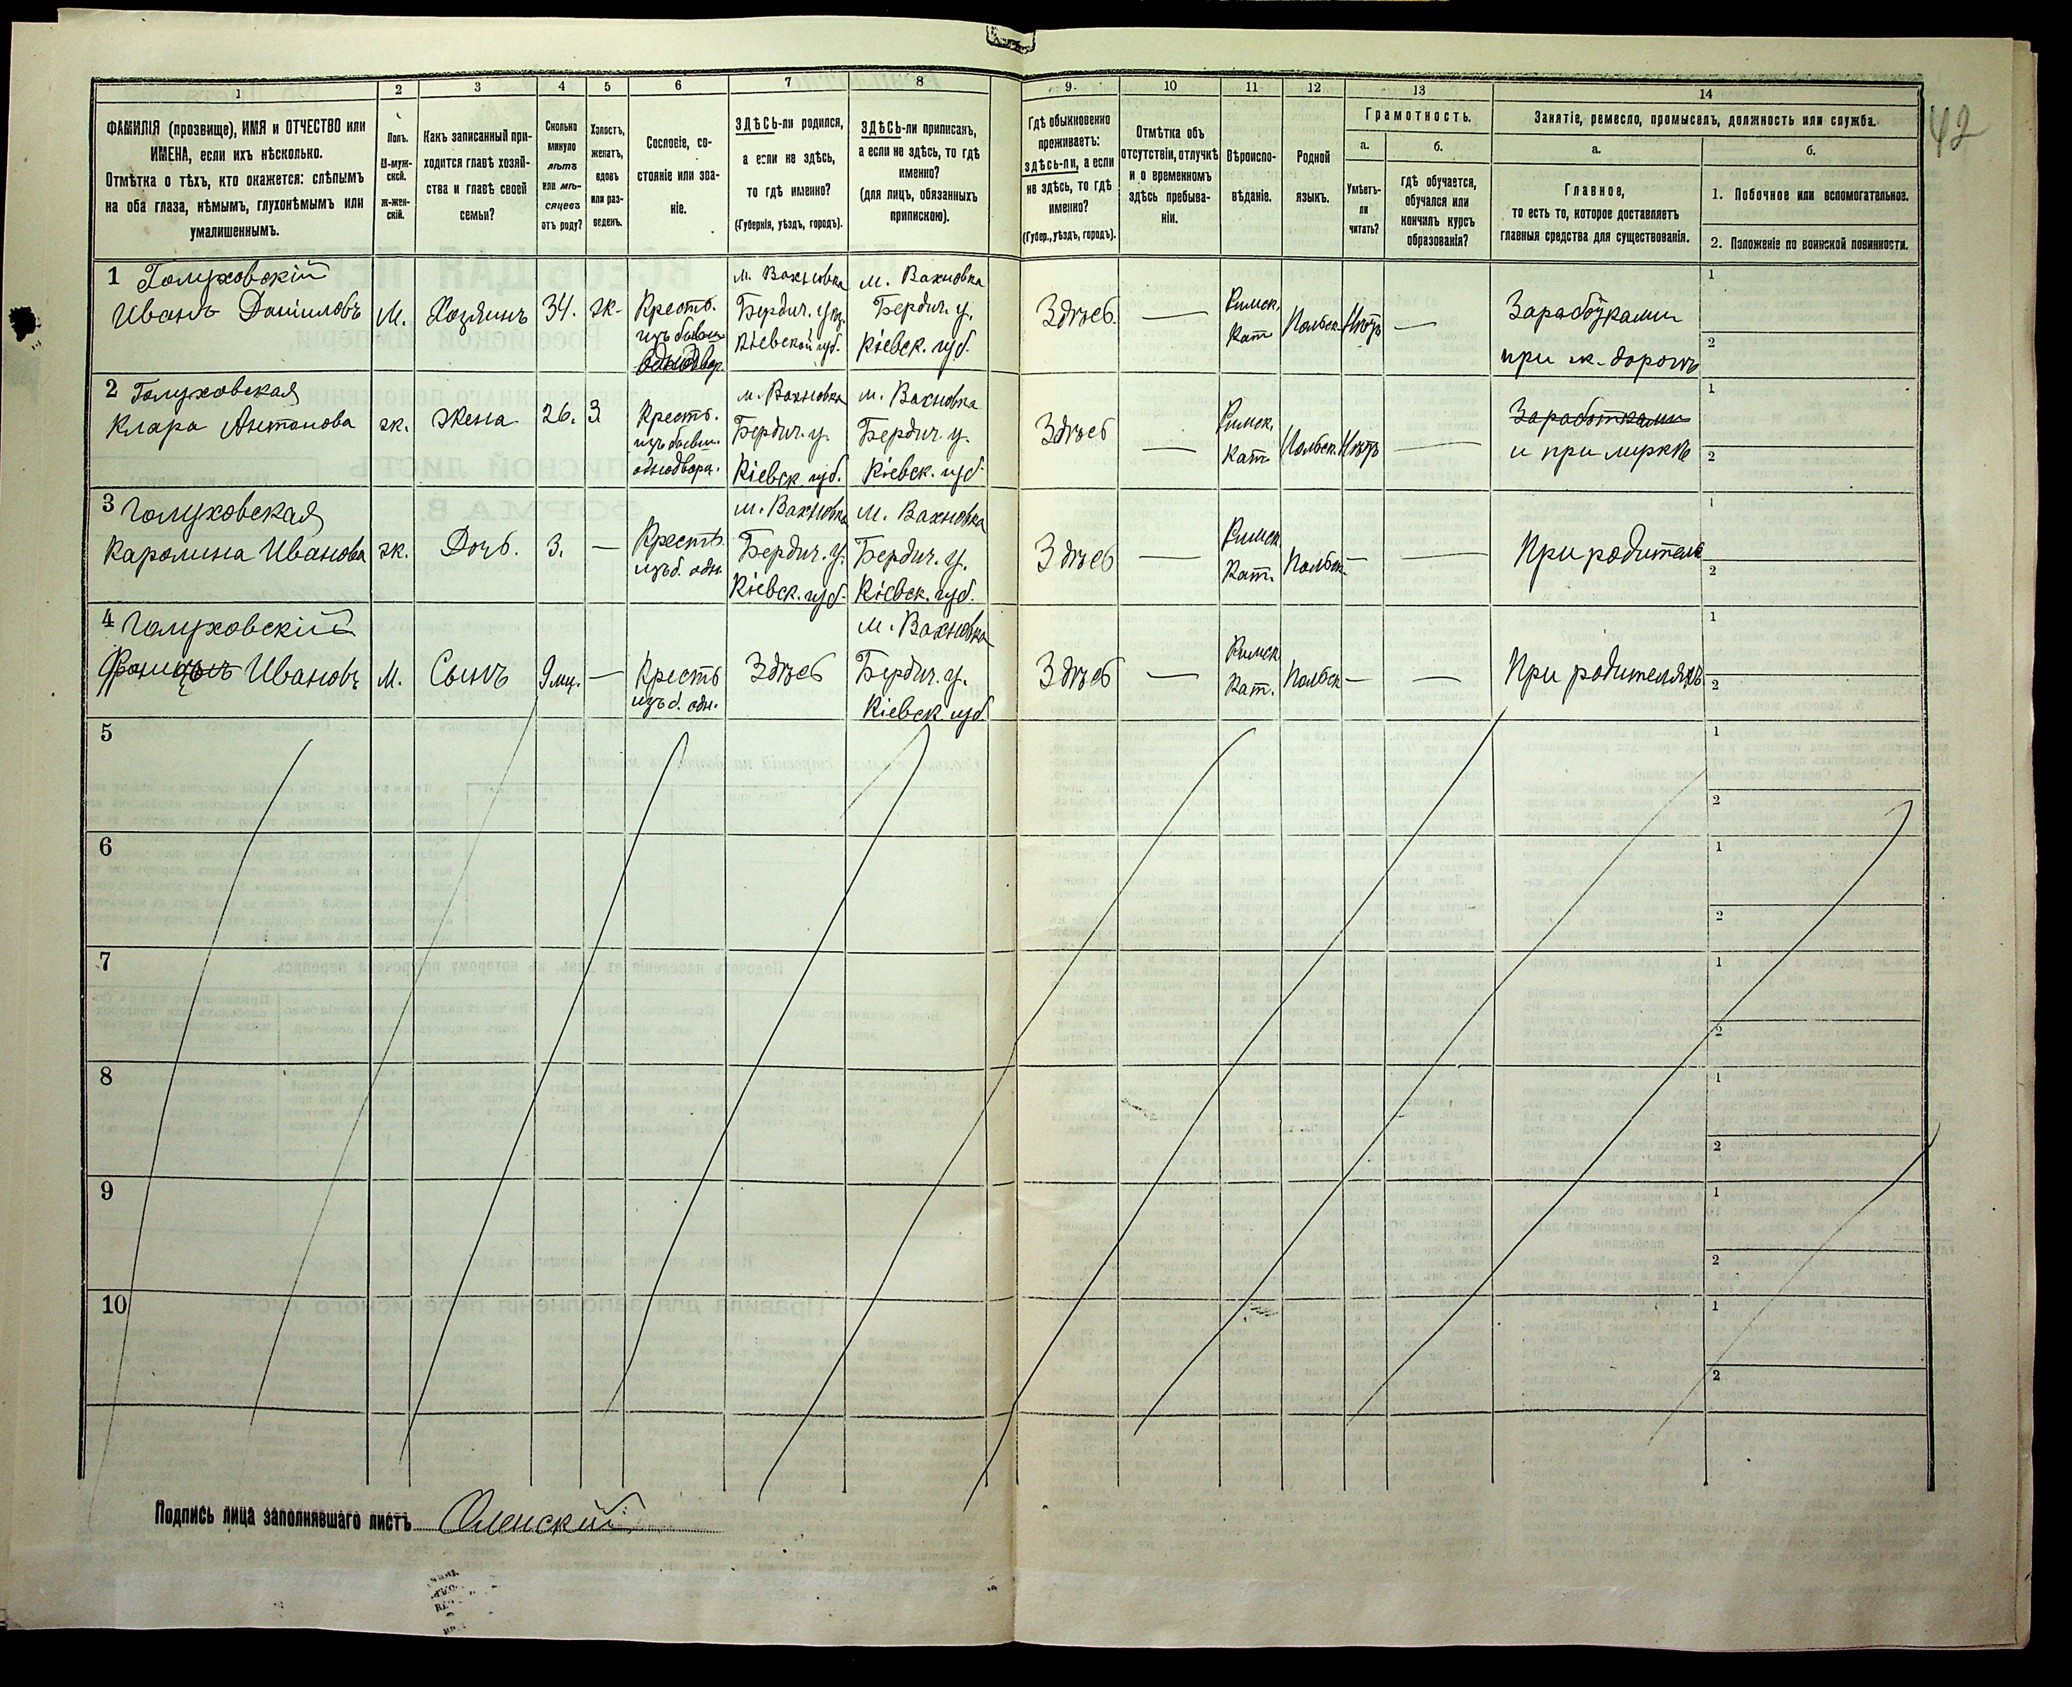 42
1
2
3
4
5
6
7
8
9
10
11
12
13
14
ФАМИЛІЯ (прозвище), ИМЯ и ОТЧЕСТВО или
ИМЕНА, если ихъ нѣсколько.
Отмѣтка о тѣхъ, кто окажется: слѣпымъ
на оба глаза, нѣмымъ, глухонѣмымъ или
умалишеннымъ.
Полъ.
М-муж-
ской.
Ж-жен-
скій.
Какъ записанный при-
ходится главѣ хозяй-
ства и главѣ своей
семьи?
Сколько
минуло
лѣтъ
или мѣ-
сяцевъ
отъ роду?
Холостъ,
женатъ,
вдовъ
или раз-
веденъ.
Сословіе, со-
стояніе или зва-
ніе.
ЗДѢСЬ-ли родился,
а если не здѣсь,
то гдѣ именно?
(Губернія, уѣздъ, городъ).
ЗДѢСЬ-ли приписанъ,
а если не здѣсь, то гдѣ
именно?
(для лицъ, обязанныхъ
припискою).
Гдѣ обыкновенно
проживаетъ:
здѣсь-ли, а если
не здѣсь, то гдѣ
именно?
(Губер., уѣздъ, городъ).
Отмѣтка объ
отсутствіи, отлучкѣ
и о временномъ
здѣсь пребыва-
ніи.
Вѣроиспо-
вѣданіе.
Родной
языкъ.
Грамотность.
а.
Умѣетъ-
ли
читать?
б.
гдѣ обучается,
обучался или
кончилъ курсъ
образованія?
Занятіе, ремесло, промыселъ, должность или служба.
а.
Главное,
то есть то, которое доставляетъ
главныя средства для существованія.
б.
1. Побочное или вспомогательное.
2. Положеніе по воинской повинности.
1 Голуховскій
Иванъ Даниловъ
М.
Хозяинъ
34.
ж-
Крестъ.
изъ бывш
однодвор
м. Вахновка
Бердич. уѣз.
Кіевской губ.
м. Вахновка
Бердич. у.
Кіевск. губ.
Здѣсь.
—
Римск.
Кат
Польск.
Нѣтъ
—
Заработками
при ж. дорогѣ
1
2
2 Голуховская
Клара Антонова
ж.
Жена
26.
З
Крестъ.
изъ бывш.
однодвора.
м. Вахновка
Бердич. у.
Кіевск. губ.
м. Вахновка
Бердич. у.
Кіевск. губ.
Здѣсь
—
Римск.
Кат.
Польск.
Нѣтъ
—
Заработками
и при мужѣ
1
2
3 Голуховская
Каролина Иванова
ж.
Дочь.
3.
—
Крестъ.
изъ б. одн.
м. Вахновка
Бердич. у.
Кіевск. губ.
м. Вахновка
Бердич. у.
Кіевск. губ.
Здѣсь
—
Римск.
Кат.
Польск.
—
—
При родителя
1
2
4 Голуховскій
Францъ Ивановъ
М.
Сынъ
9 мц.
—
Крестъ
изъ б. одн.
Здѣсь
м. Вахновка
Бердич. у.
Кіевск. губ
Здѣсь
—
Римск.
Кат.
Польск
—
—
При родителяхъ
1
2
5
1
2
6
1
2
7
1
2
8
1
2
9
1
2
10
1
2
Подпись лица заполнявшаго листъ Оленскій